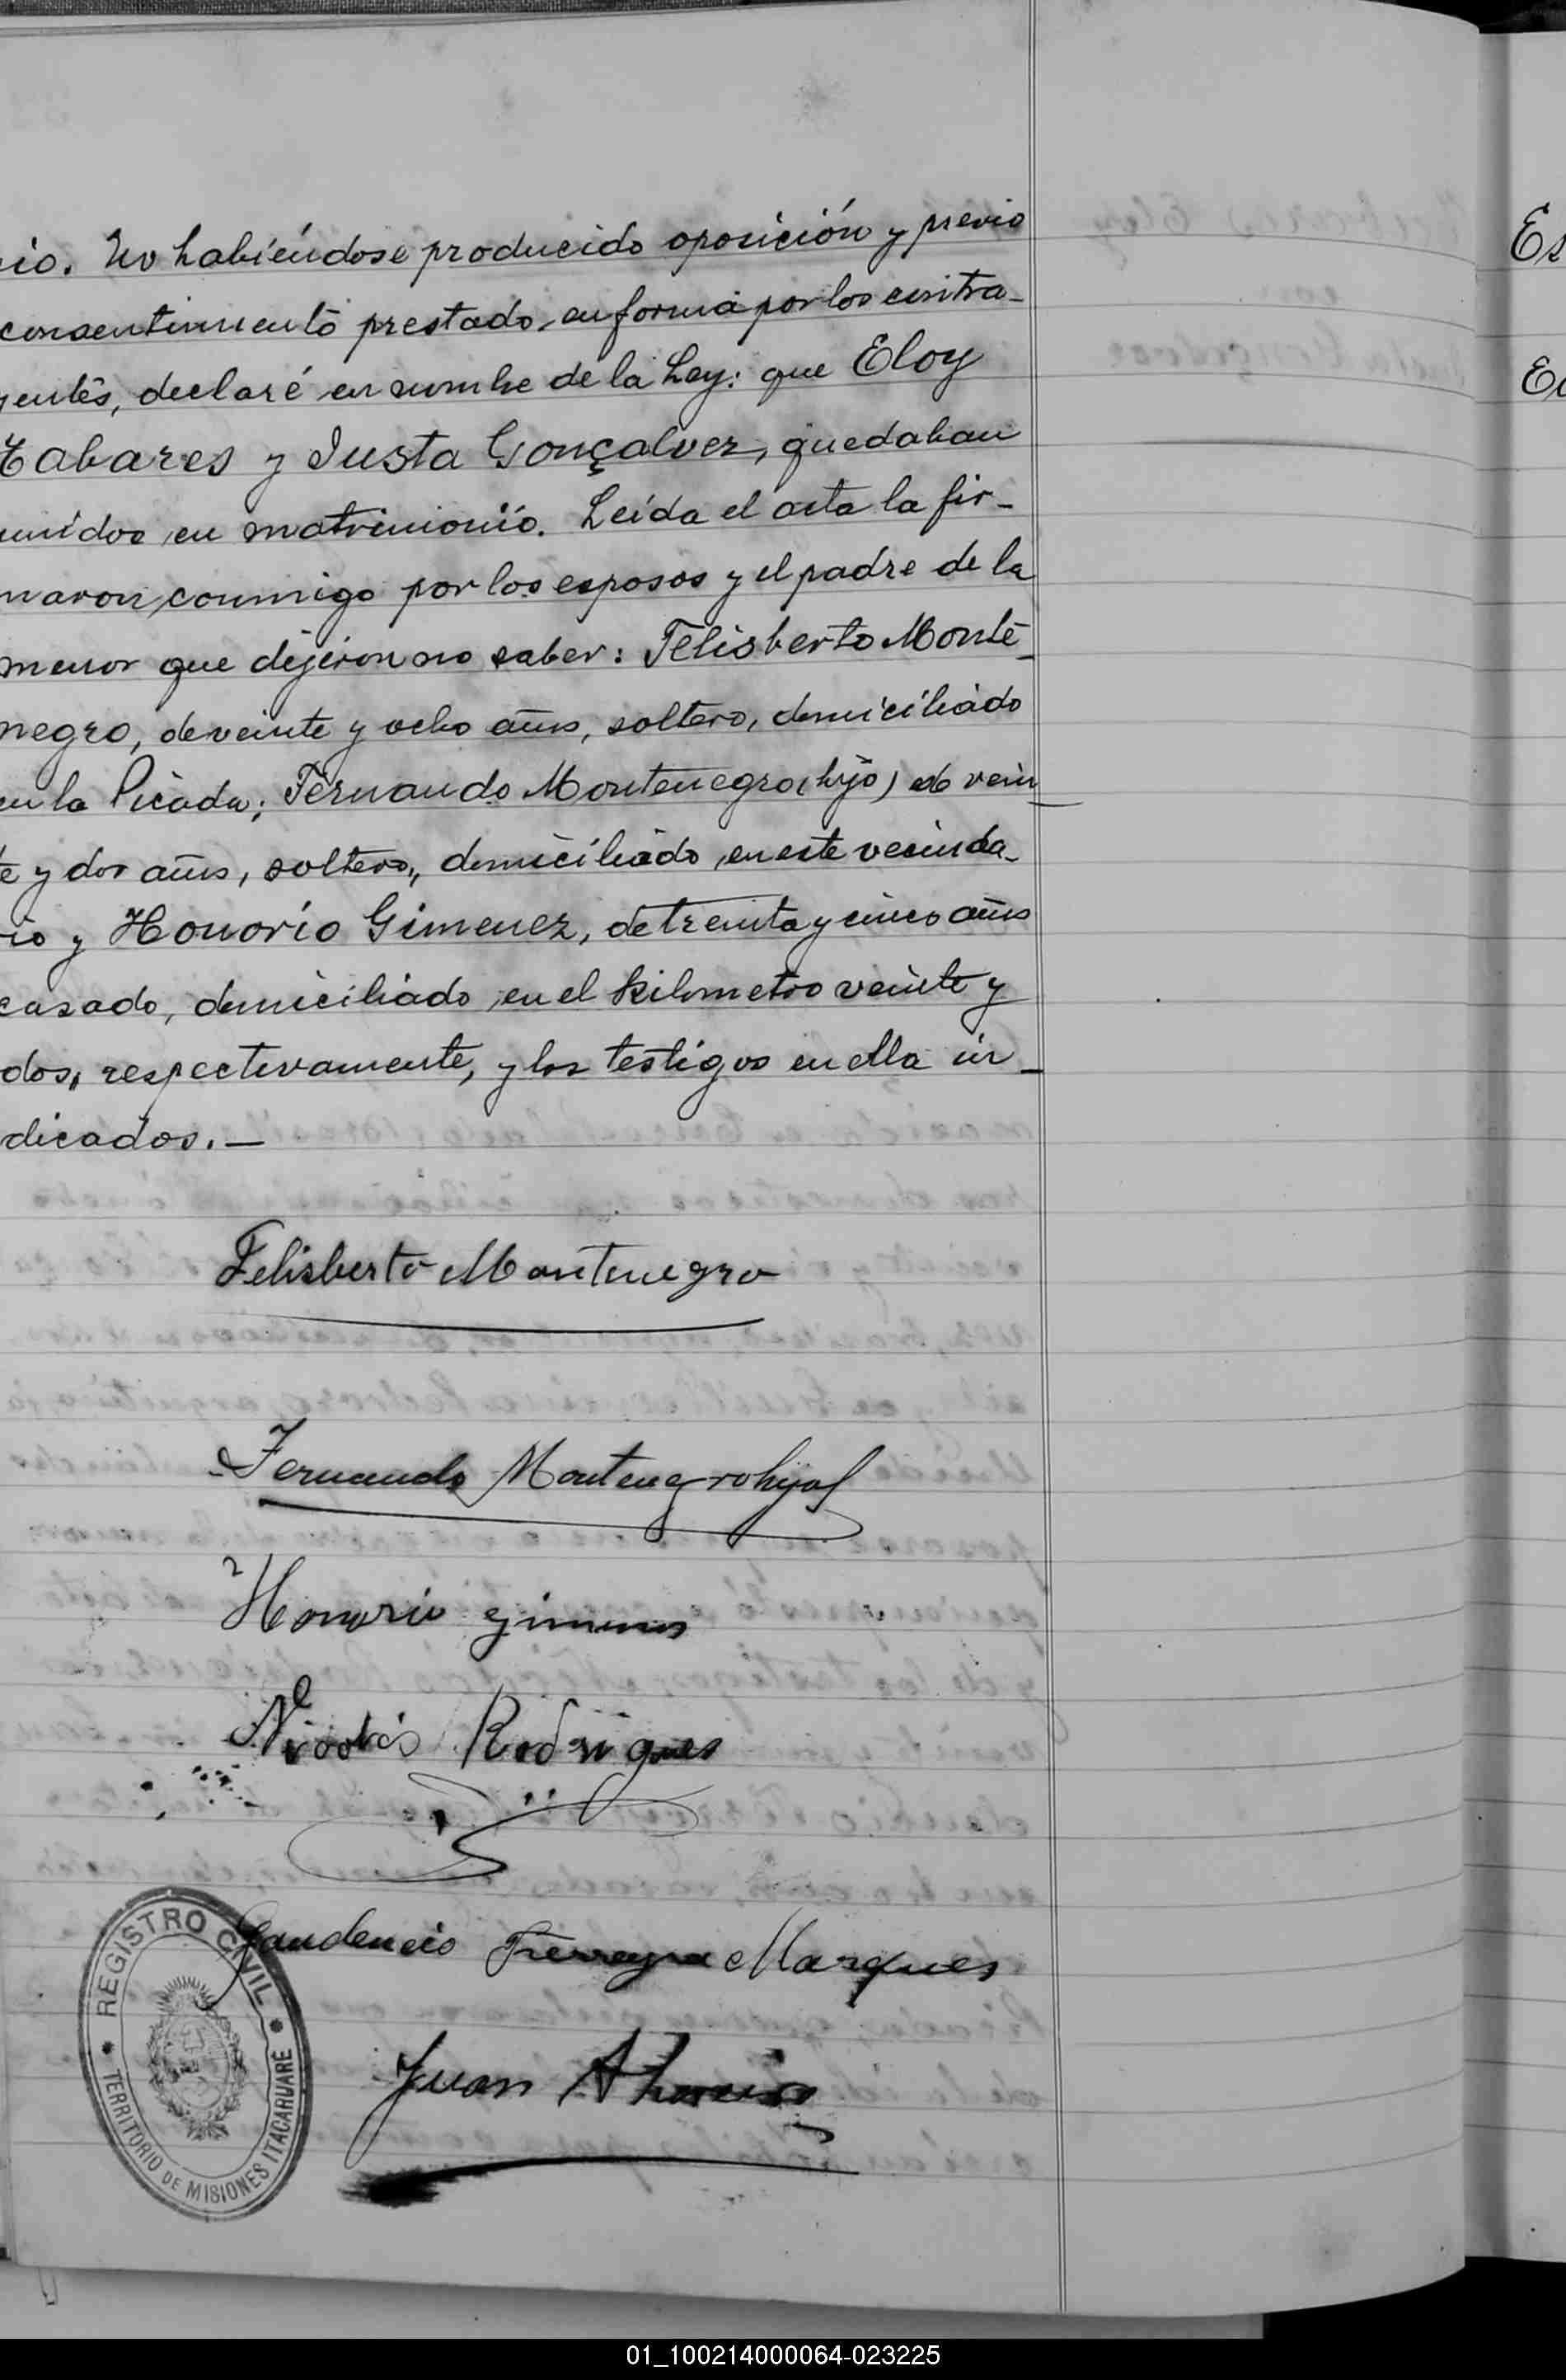 io. No habiéndose producido oposición y previo
consentimiento prestado en forma por los contra-
yentes, declaré en nombre de la Ley: que Eloy
Tabares y Justa Gonçalvez, quedaban
unidos en matrimonio. Leída el acta la fir-
maron conmigo por los esposos y el padre de la
menor que dijeron no saber: Felisberto Monte-
negro, de veinte y ocho años, soltero, domiciliado
en la Picada; Fernando Montenegro (hijo) de vein-
te y dos años, soltero, domiciliado en este vecinda-
rio y Honorio Gimenez, de treinta y cinco años
casado, domiciliado en el kilometro veinte y
dos, respectivamente, y los testigos en ella in-
dicados.—
Felisberto Montenegro
Fernando Montenegro hijo
Honorio gimenes
Nicolás Rodrigues
Gaudencio Ferreyra Marques
REGISTRO CIVIL
TERRITORIO DE MISIONES ITACARUARÉ
Juan
Es
01_100214000064-023225